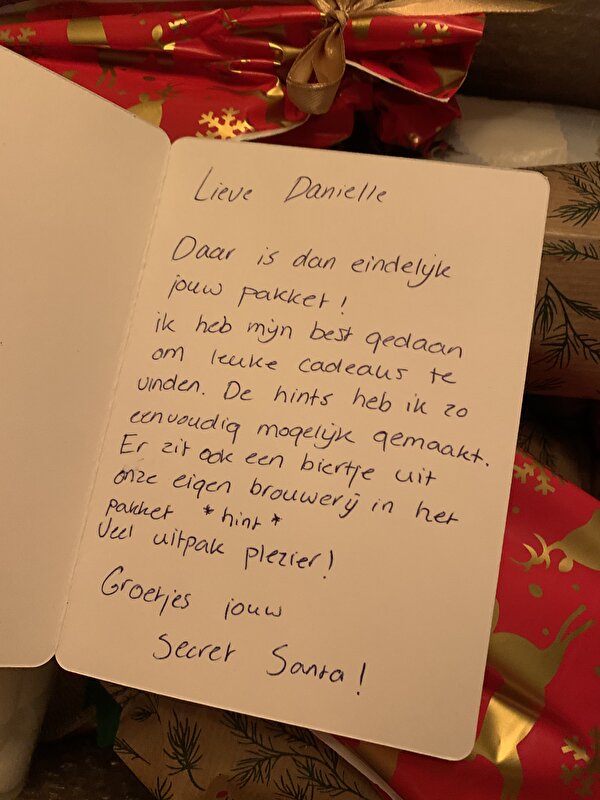 Lieve Danielle
Daar is dan eindelijk
jouw pakket!
ik heb mijn best gedaan
om leuke cadeaus te
vinden. De hints heb ik zo
eenvoudig mogelijk gemaakt.
Er zit ook een biertje uit
onze eigen brouwerij in het
pakket *hint*
Veel uitpak plezier!
Groetjes jouw
Secret Santa!